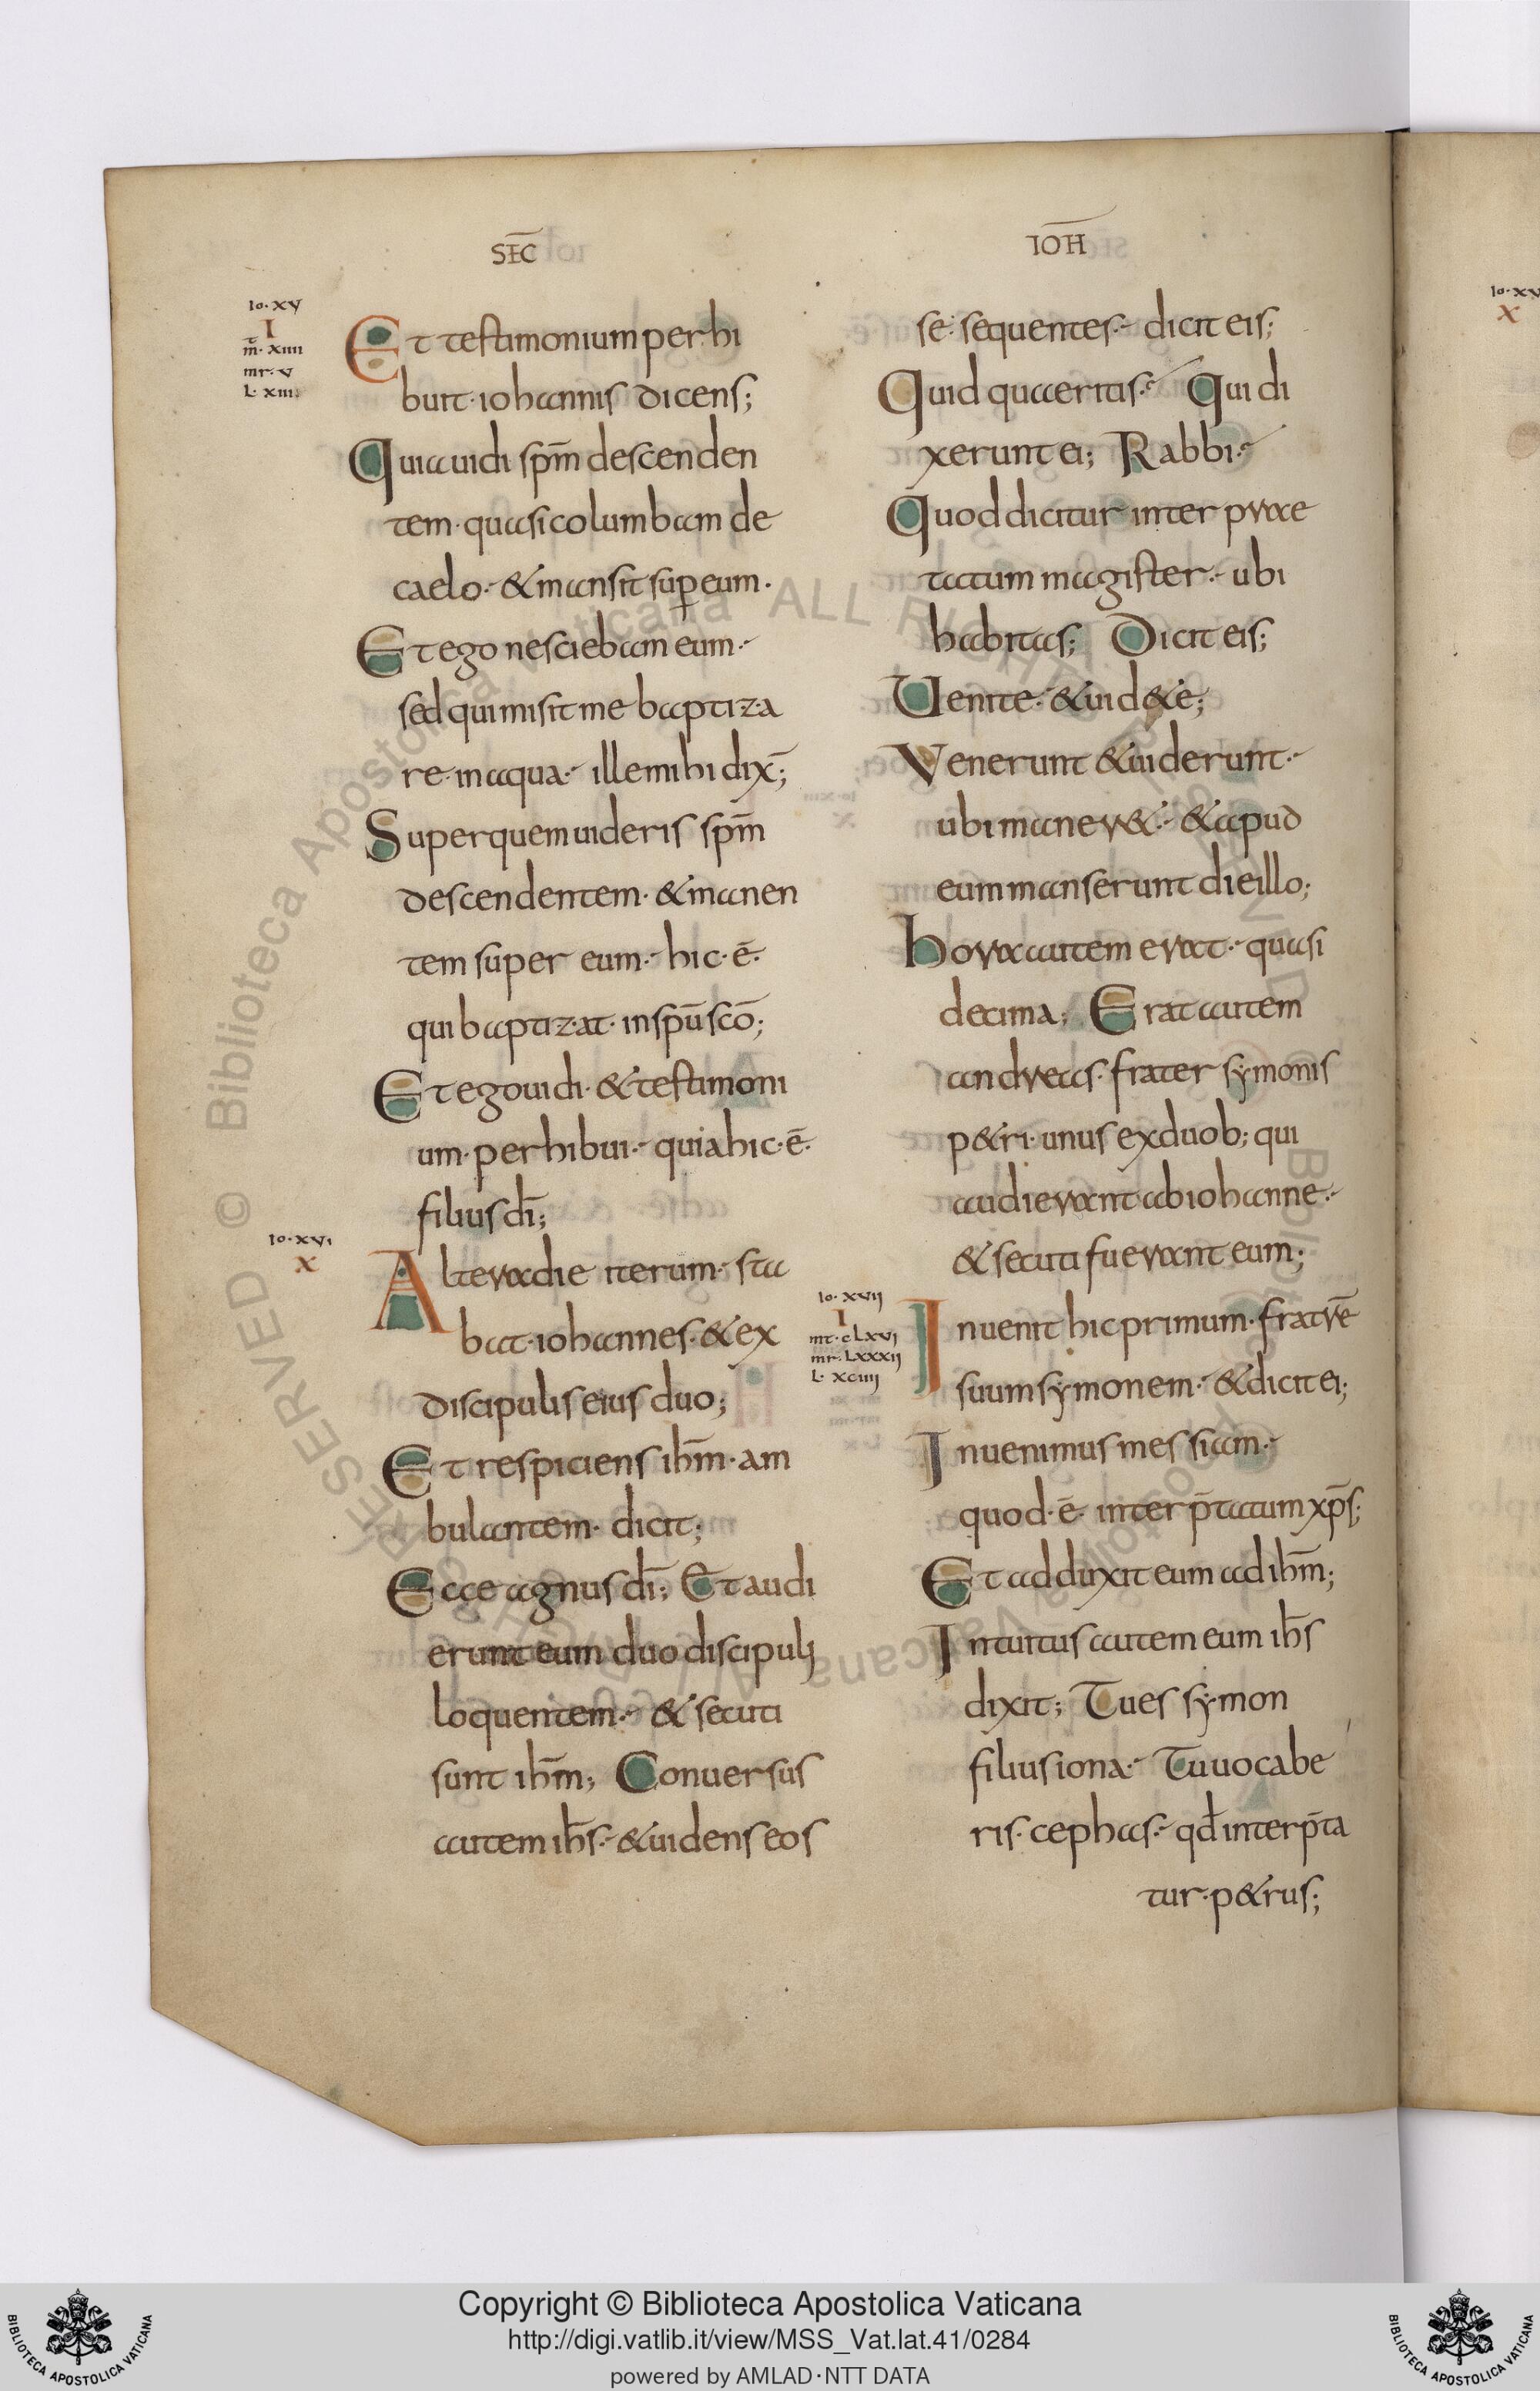 SEC̄
IOH̄
Io· xv
I
m̄· xiiii
mr· v
L· xiii·
Et testimonium perhi
buit· iohannis dicens;
Quia uidi sp̄m descenden
tem· quasi columbam de
caelo·- & mansit sup̱ eum·
Et ego nesciebam eum·-
sed qui misit me baptiza
re· in aqua·- ille mihi dix̄;
Super quem uideris sp̄m
descendentem· & manen
tem super eum·- hic· ē·
qui baptizat· in sp̄u scō;
Et ego uidi· & testimoni
um· perhibui·- quia hic· ē·
filius dī;
Io· xvi
x
Altera die iterum·- sta
bat· iohannes· & ex
discipulis eius duo;
Et respiciens ih̄m· am
bulantem· dicit;
Ecce agnus dī; Et audi
erunt eum duo discipuli
loquentem·- & secuti
sunt ih̄m; Conuersus
autem ih̄s·- & uidens eos
se· sequentes·- dicit eis;
Quid quaeritis·- Qui di
xerunt ei; Rabbi·-
Quod dicitur interprae
tatum magister·- ubi
habitas; Dicit eis;
Uenite· & uid&e;
Venerunt & uiderunt·-
ubi maner&·- & apud
eum manserunt die illo;
hora autem erat·- quasi
decima; Erat autem
andreas· frater symonis
p&ri· unus ex duob; qui
audierant ab iohanne·-
& secuti fuerant eum;
Io· xvii
I
mt· clxvi
mr· lxxxii
L· xciiii
Inuenit hic primum· fratrē
suum symonem·- & dicit ei;
Inuenimus messiam·-
quod· ē· interp̄tatum xp̄s;
Et adduxit eum ad ih̄m;
Intuitus autem eum ih̄s
dixit; Tu es symon
filius iona·- Tu uocabe
ris· cephas·- qđ interp̄ta
tur· p&rus;
Io· xv
x
Copyright © Biblioteca Apostolica Vaticana
http://digi.vatlib.it/view/MSS_Vat.lat.41/0284
powered by AMLAD·NTT DATA
BIBLIOTECA APOSTOLICA VATICANA
BIBLIOTECA APOSTOLICA VATICANA